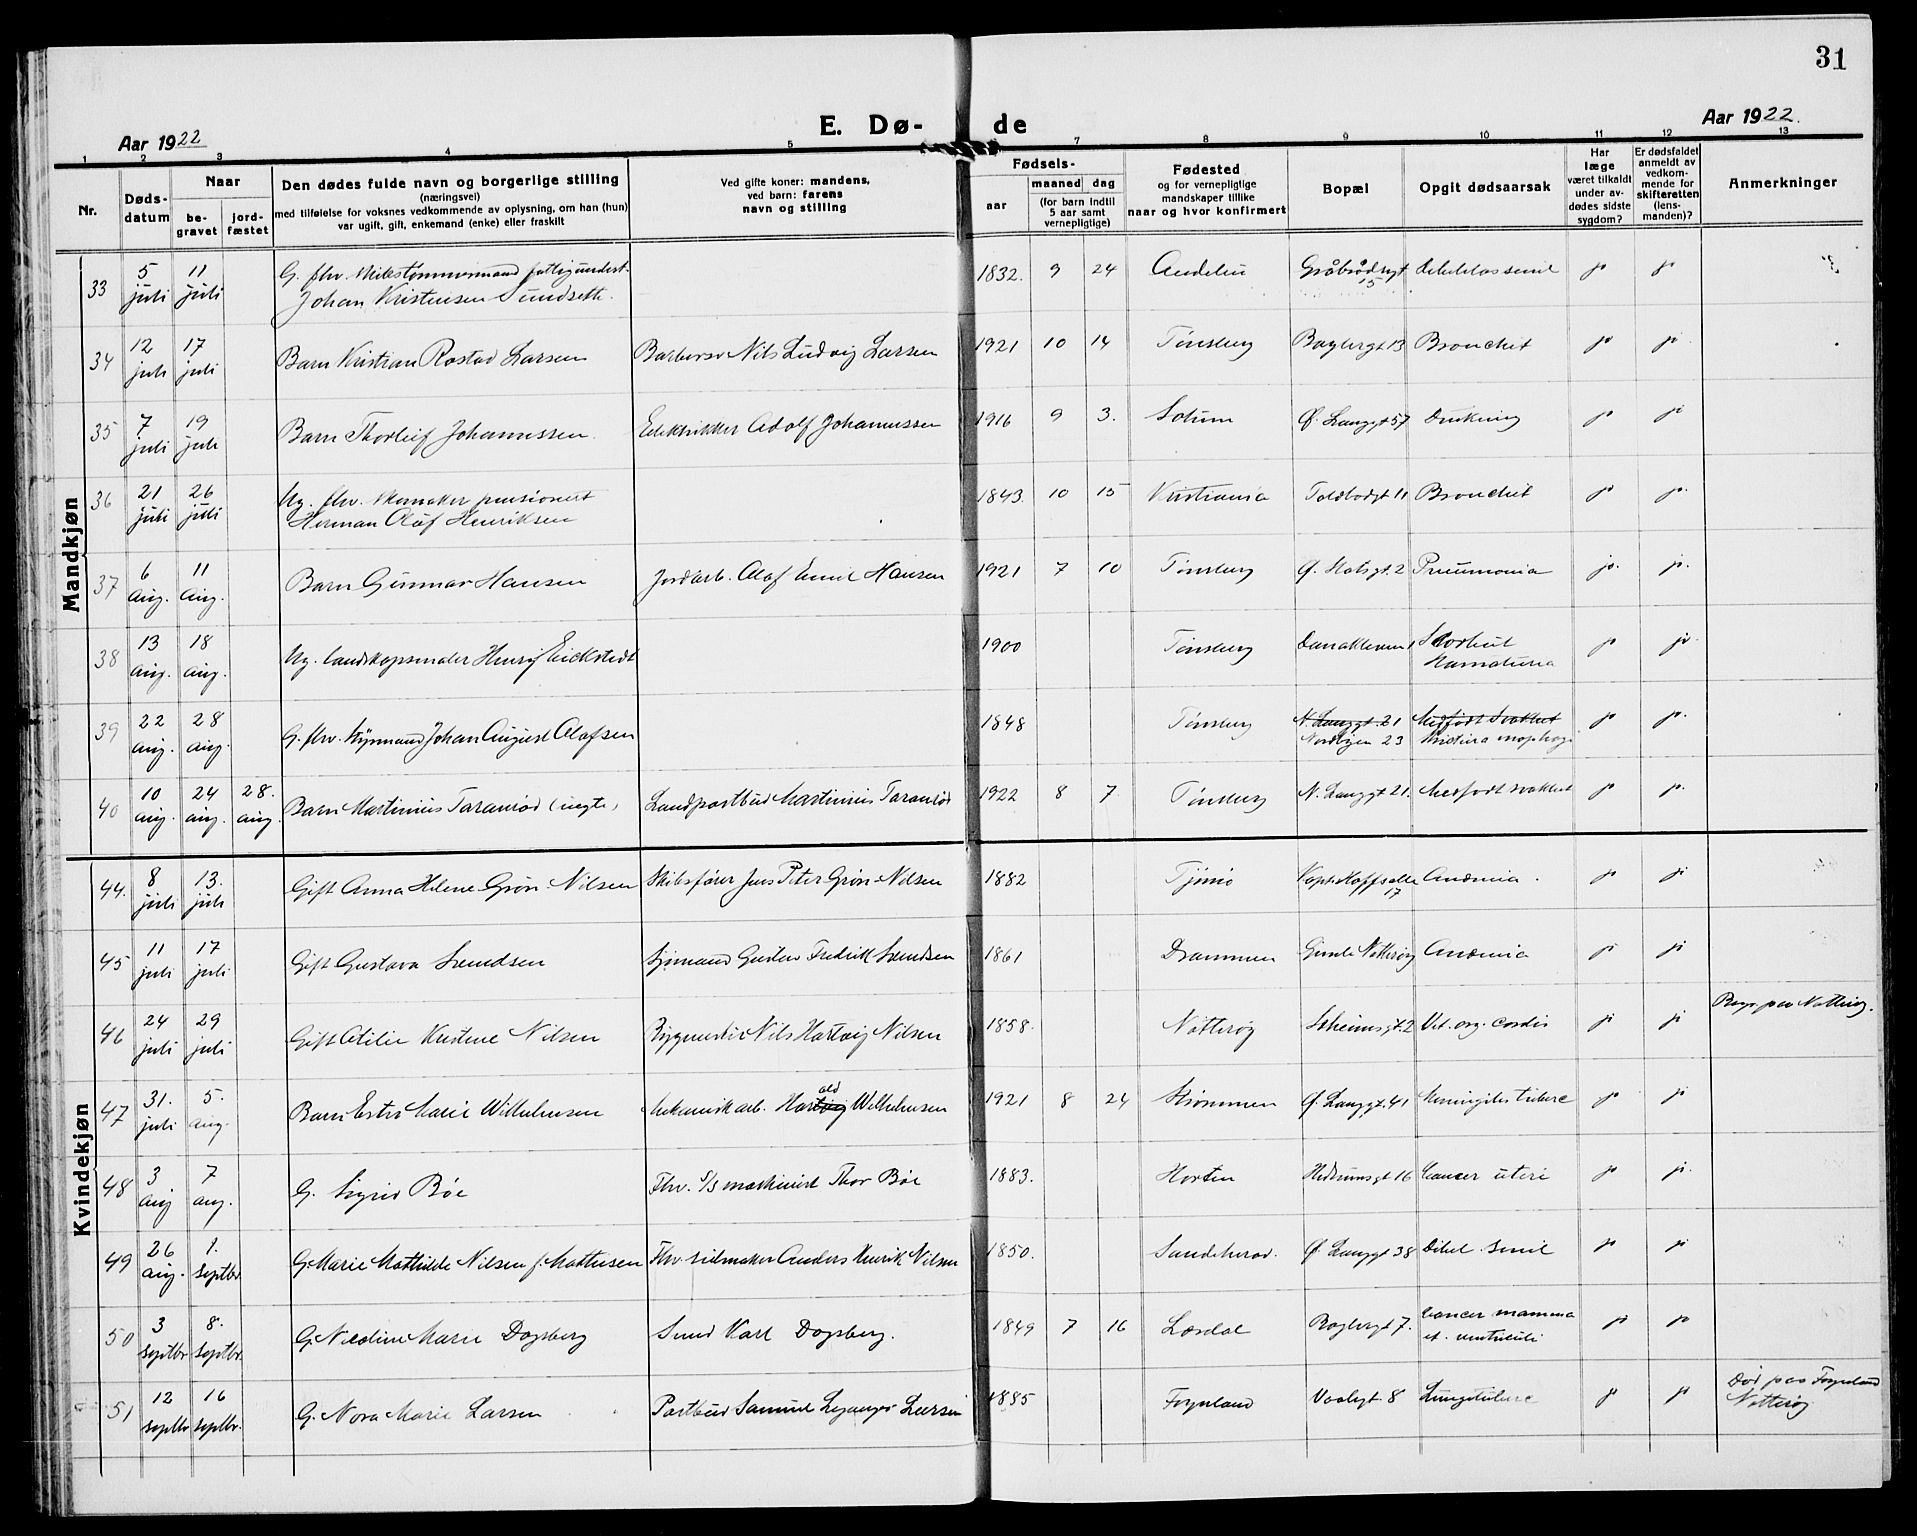 31
Aar 1922
E. Dø- de
Aar 1922.
1 2 3 4 5 7 8 9 10 11 12 13
Nr.
Døds-
datum
Naar
be-
gravet
jord-
fæstet
Den dødes fulde navn og borgerlige stilling
(næringsvei)
med tilføielse for voksnes vedkommende av oplysning, om han (hun)
var ugift, gift, enkemand (enke) eller fraskilt
Ved gifte koner: mandens,
ved barn: farens
navn og stilling
Fødsels-
aar
maaned dag
(for barn indtil
5 aar samt
vernepligtige)
Fødested
og for vernepligtige
mandskaper tillike
naar og hvor konfirmert
Bopæl
Opgit dødsaarsak
Har
læge
været tilkaldt
under av-
dødes sidste
sygdom?
Er dødsfaldet
anmeldt av
vedkom-
mende for
skifteretten
(lens-
manden)?
Anmerkninger
Mandkjøn
33 5 juli 11 juli G. fhv. skibstømmermand
Johan Kristensen Sundsette. 1832. 9 24 15 jo jo
34 12 juli 17 juli Barn Kristian Rostad Larsen Barberer Nils Ludvig Larsen 1921 10 14 Tønsberg Baglergt 13 Bronchit jo jo.
35 7 juli 19 juli Barn Thorleif Johannessen. Elektriker Adolf Johannessen 1916 9 3. Ø. Langgt 57 Drukning jo jo
36 21 juli 26 juli Ug. fhv. skomaker pensionert
Herman Olaf Henriksen 1843. 10 15 Kristiania Toldbodgt 11 Bronchit jo jo.
37 6 aug. 11 aug. Barn Gunnar Hansen Jordarb. Olaf Emil Hansen 1921 7 10 Tønsberg Pneumonia jo. jo.
38 13 aug. 18 aug. Ug. landskapsmaler Henrif Eickstedt 1900 Tønsberg Skorbut
Hæmaturia jo jo.
39 22 aug. 28 aug. G. fhv. styrmand Johan August Olafsen 1848 Tønsberg N. Langgt. 21
Nordbyen 23 Medfødt svakhet jo jo.
40 10 aug. 24 aug. 28. aug. Barn Martinius Taranrød (uegte) Landpostbud Martinius Taranrød 1922 8 7. Tønsberg N. Langgt 21. Medfødt svakhet jo jo.
Kvindekjøn
44. 8 juli 13. juli Gift Anna Helene Grøn-Nilsen Skibsfører Jens Peter Grøn-Nilsen 1882 Tjømø 17 Anæmia. jo jo
45 11 juli 17 juli Gift Gustava Svendsen Sjømand Gustav Fredrik Svendsen 1861 Drammen Gimle Nøtterøy Anæmia jo jo
46 24 juli 29 juli Gift Otilie Kristine Nilsen Bygmester Nils Hartvig Nilsen 1858. Nøtterøy Solheimsgt. 2 Vit. org. cordis jo jo Begr. paa Nøtterøy.
47 31. juli 5. aug. Barn Ester Marie Wilhelmsen Mekanisk arb. Hartvig ald Wilhelmsen 1921 8 24 Strømmen Ø. Langgt. 41 Meningites tuberc jo jo
48 3 aug 7 aug. G. Sigrid Bøe Fhv. S/S maskinist Thor Bøe 1883. Horten 16 Cancer uteri jo jo.
49 26 aug. 1. septbr G. Marie Mathilde Nilsen f. Mathisen Fhv. seilmaker Anders Henrik Nilsen 1850. Sandeherad. Ø. Langgt 38 Debil. senil jo jo
50 3 septbr 8. septbr. G. Nicoline Marie Dogsberg Smed Karl Dogsberg. 1849 7 16 Lærdal Baglergt 7. Cancer mamma
et. ventriculi jo jo
51 12 septbr 16 septbr. G. Nora Marie Larsen Postbud Samuel Leganger Larsen 1885 Fogneland 8 Lungetuberc jo jo Død paa Fogneland
Nøtterøy